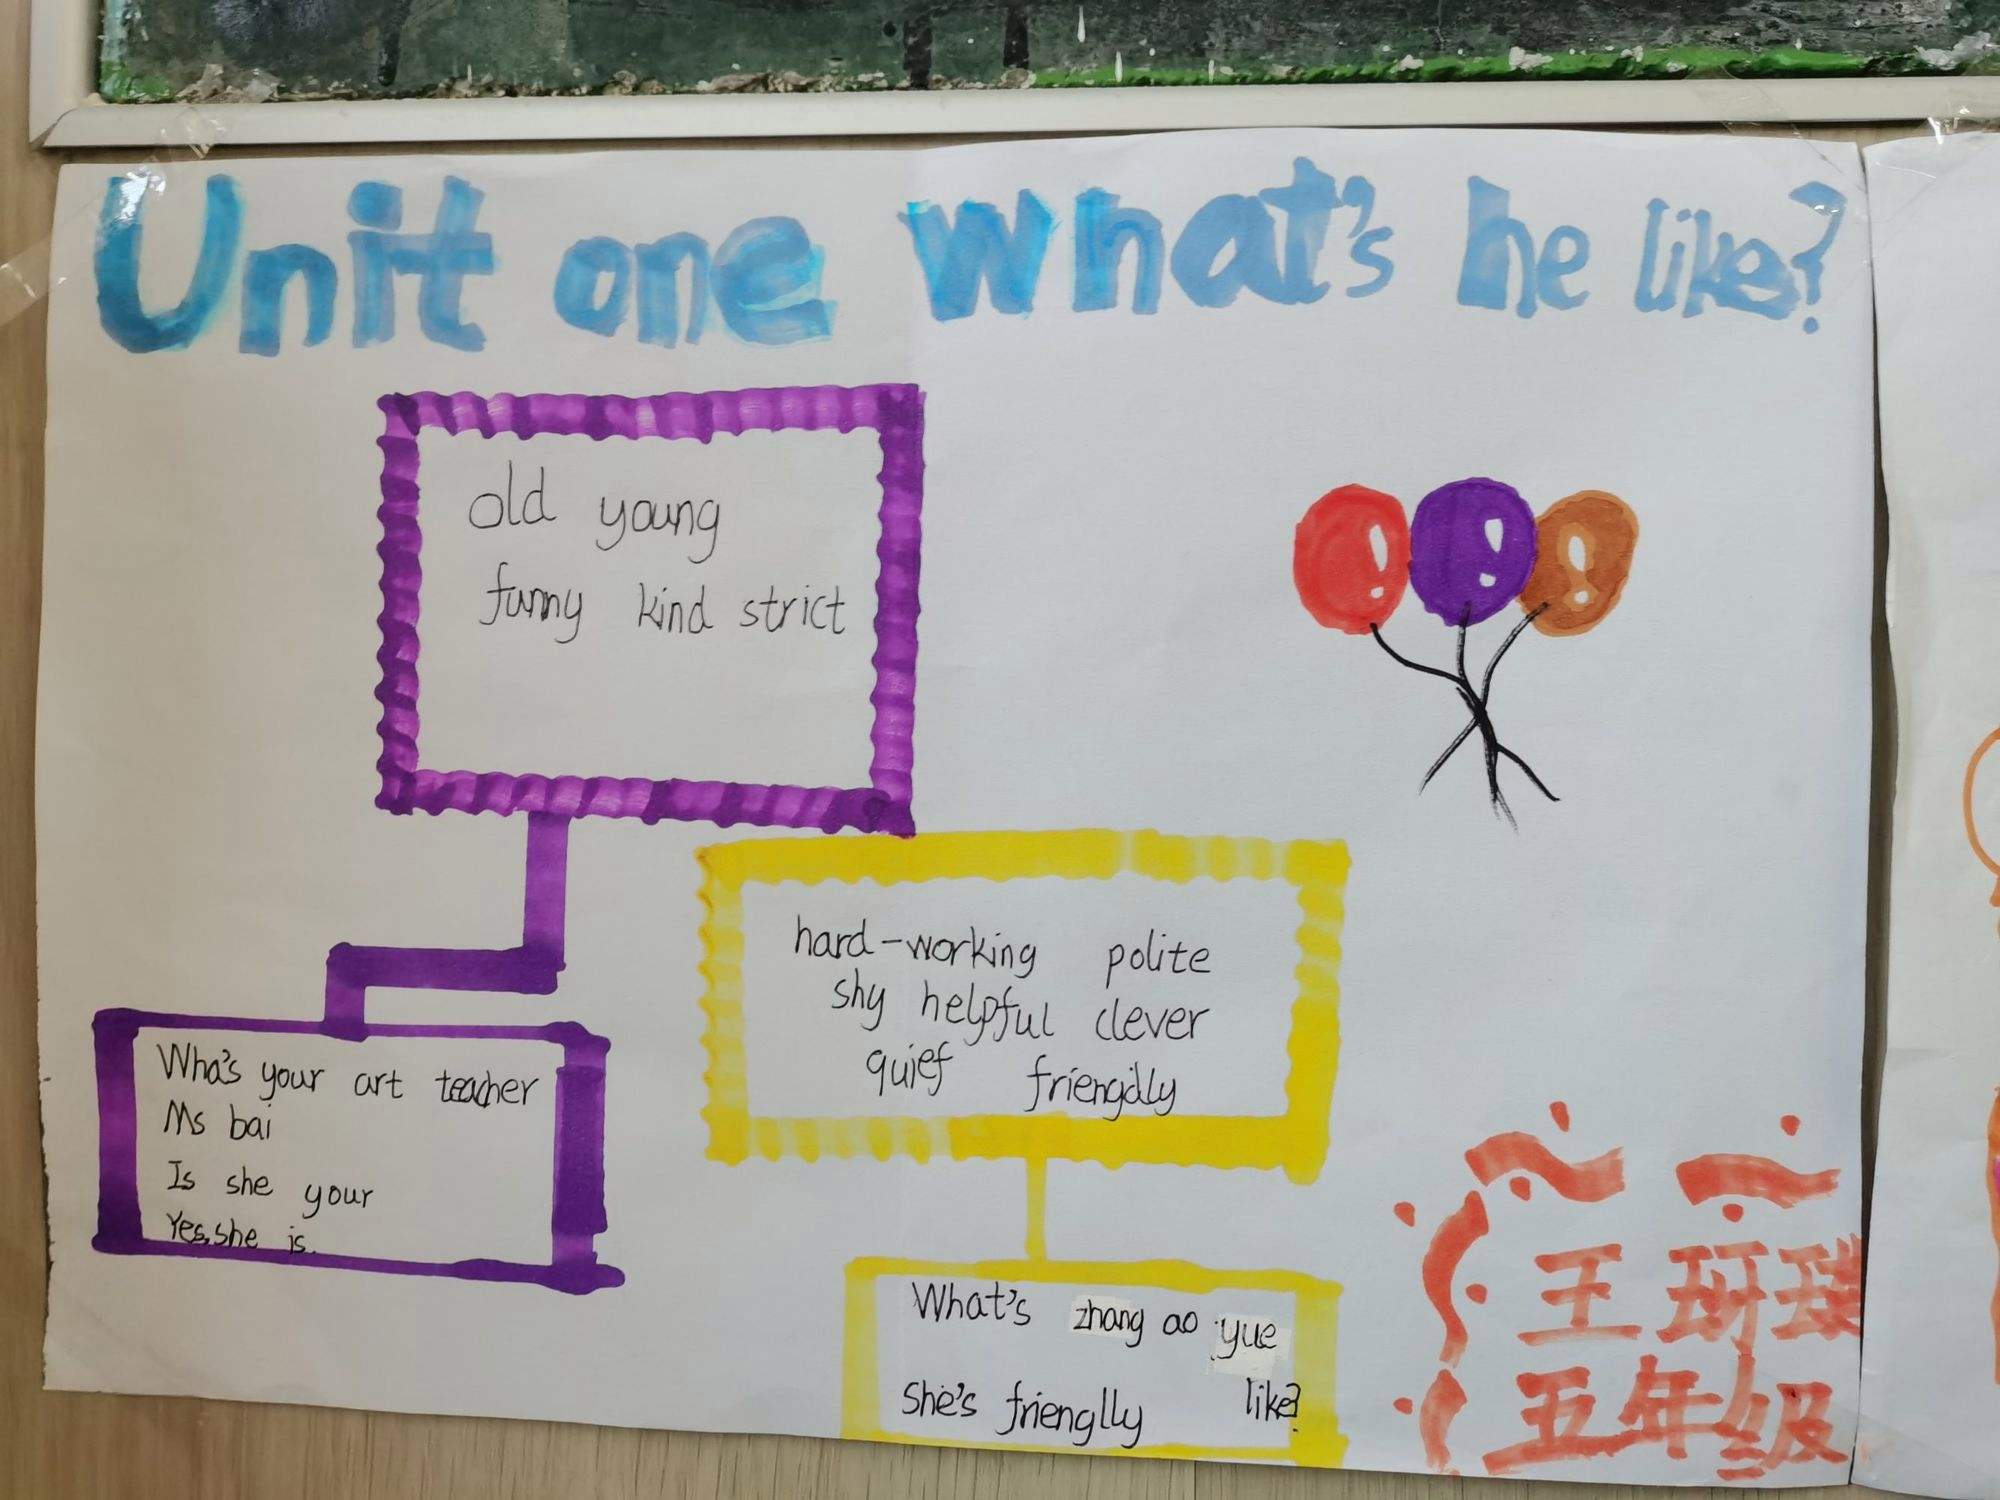 Unit one what's he like?
old young
funny kind strict
hard-working polite
shy helpful clever
quief friengdly
Wha's your art teacher
Ms bai
Is she your
Yes,she is.
What's zhang ao yue
like?
She's frienglly
王玡璞
五年级